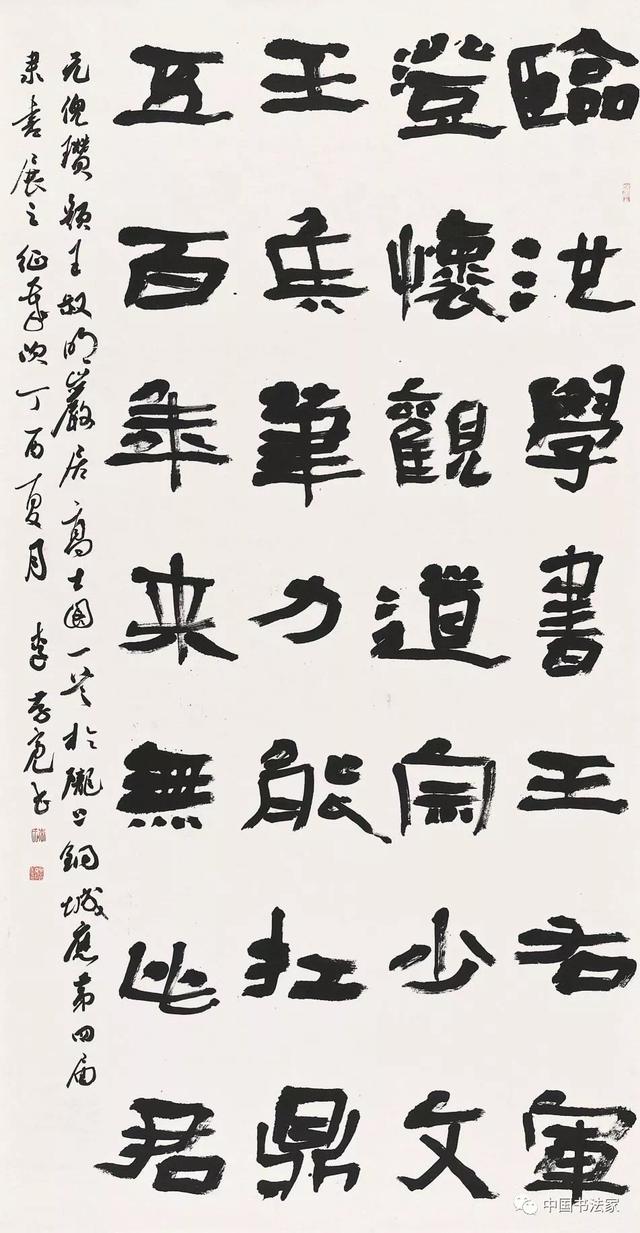 臨池學書王右軍
澄懷觀道宗少文
王侯筆力能扛鼎
五百年来無此君
元倪瓚題王叔明巖居高士圖一首於隴上銅城應第四届
隸書展之征歲次丁酉夏月 李書
中国书法家